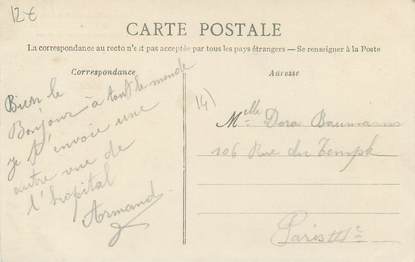 12€
CARTE POSTALE
La correspondance au recto n'est pas acceptée par tous les pays étrangers — Se renseigner à la Poste
Correspondance
Adresse
Bien le
Bonjour à tout le monde
je t'envoie une
autre vue de
l'hopital
Armand
14)
Mlle Dora Baumann
106 Rue du Temple
Paris IIIe